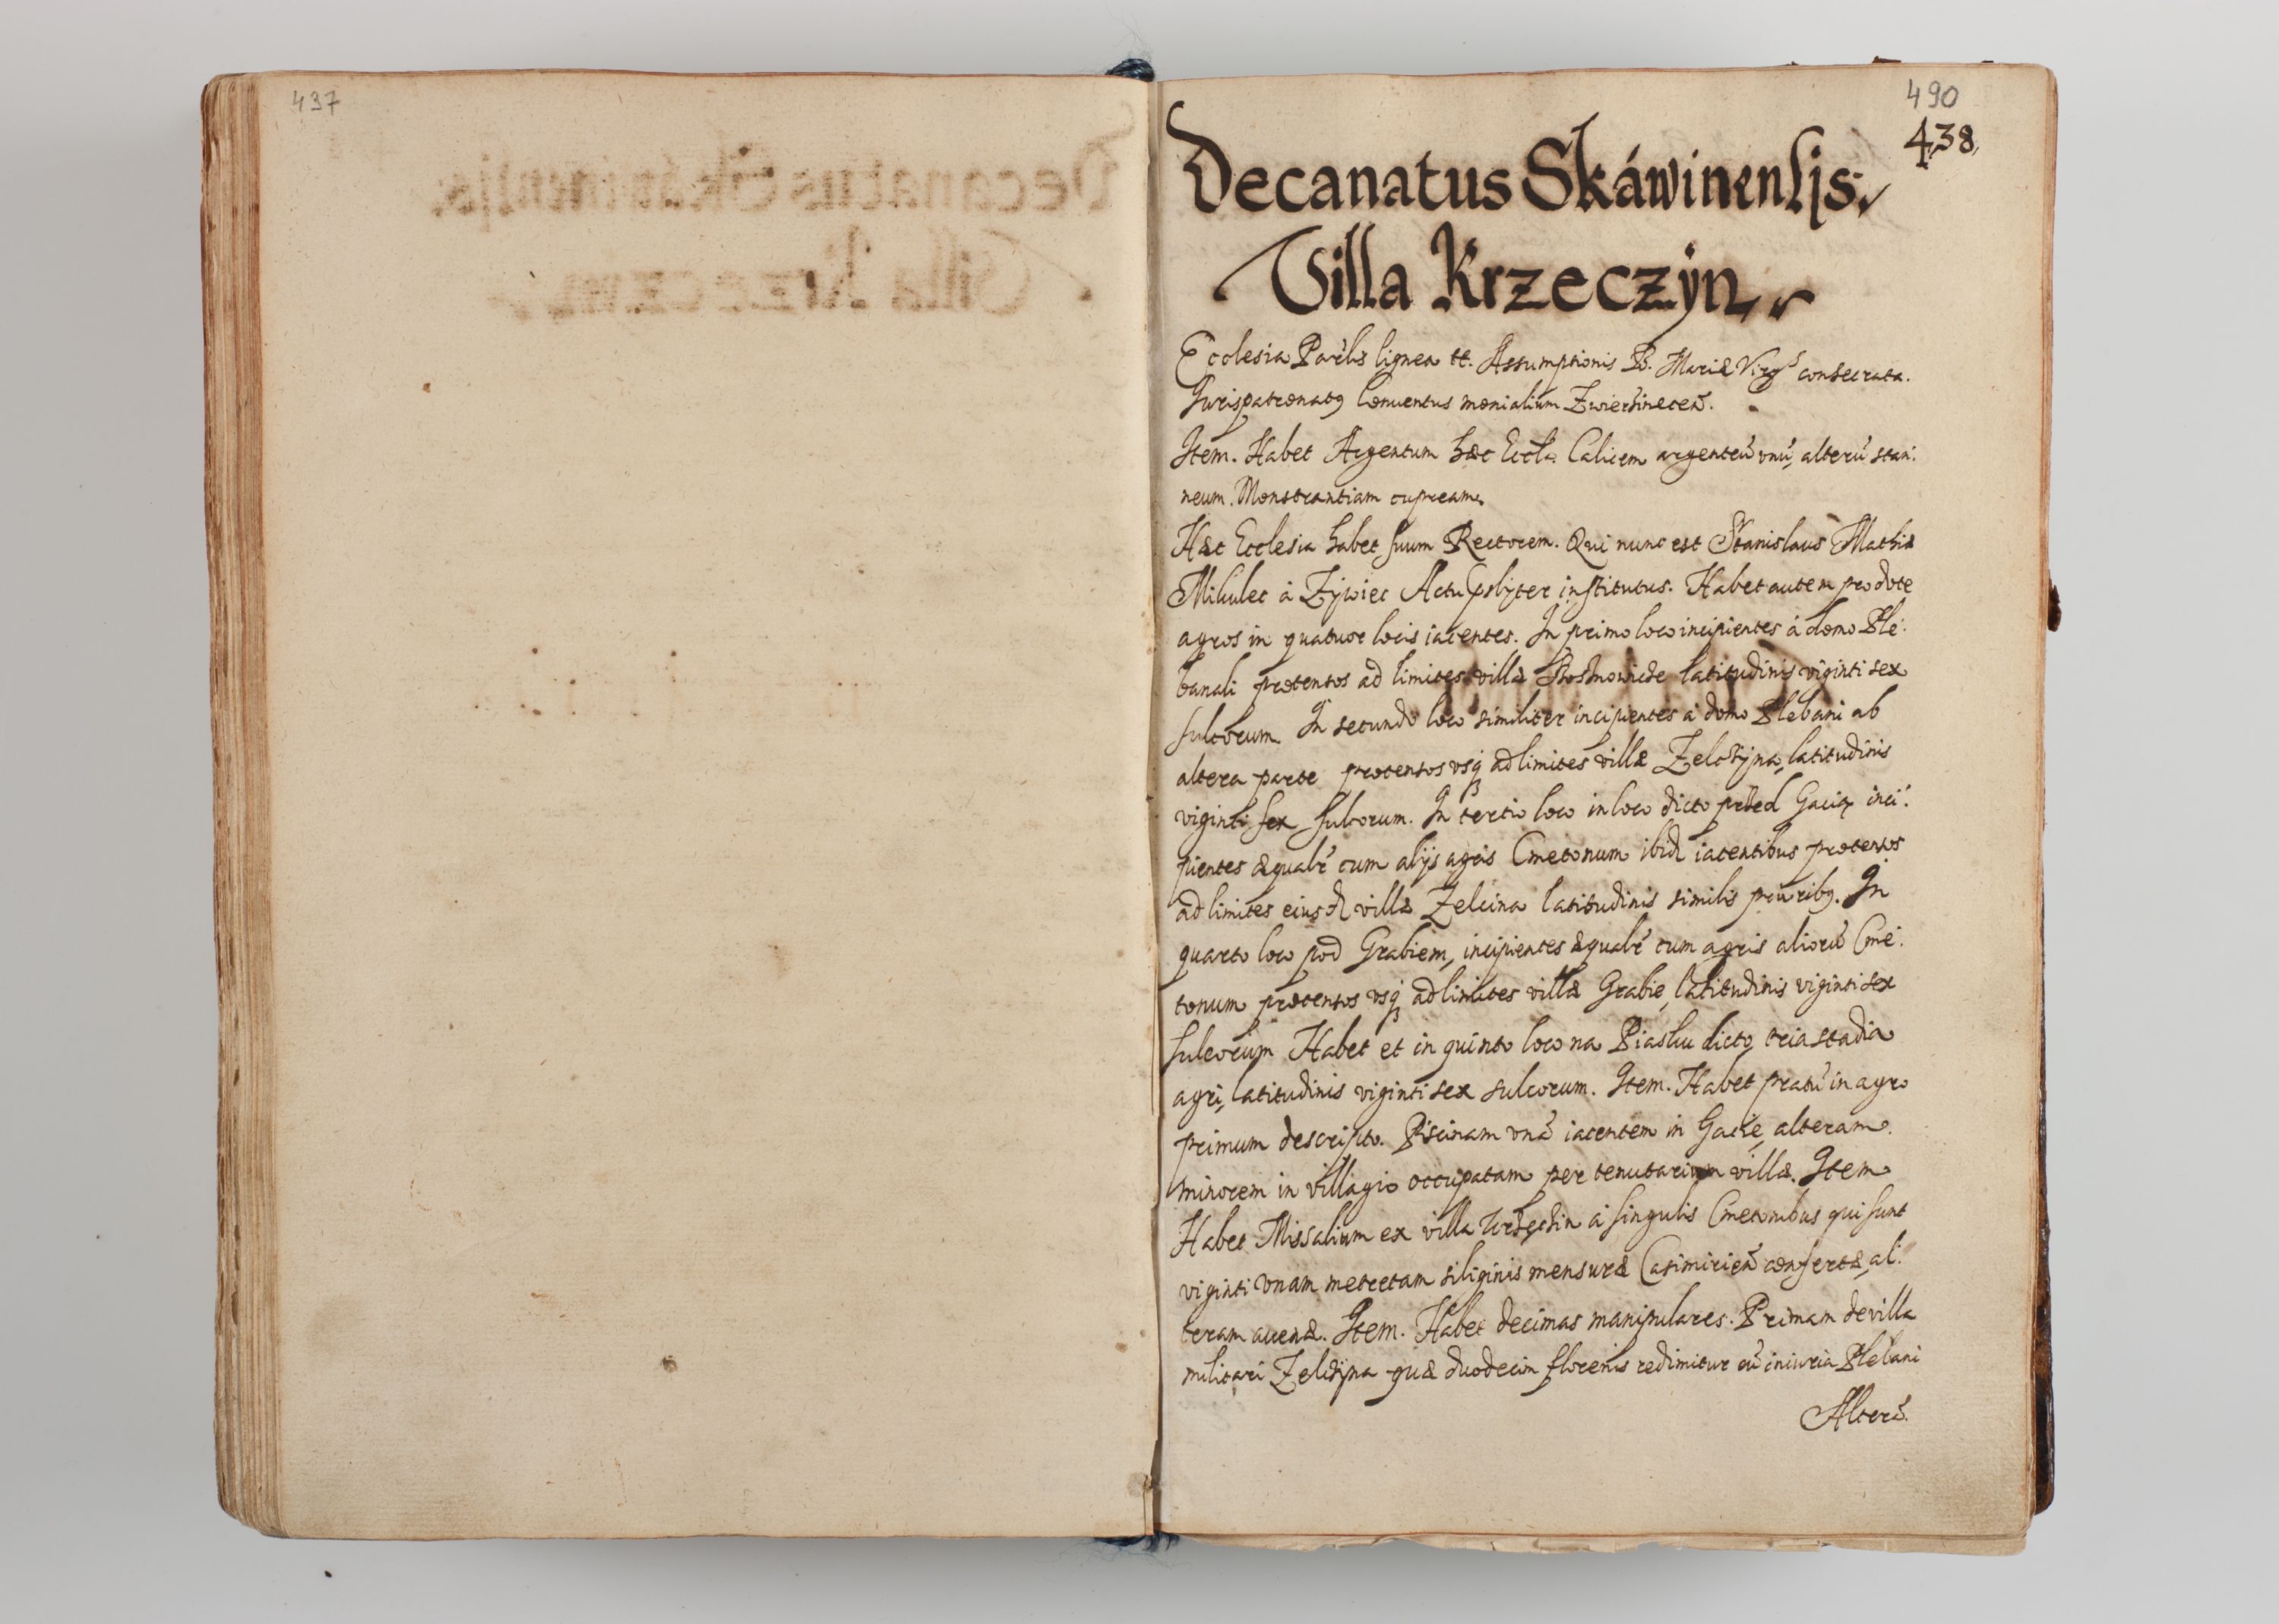 437
490
438
Decanatus Skáwinensis.
Villa Krzeczÿn
Ecclesia Parẽlis lignea tt. Assumptionis B. Mariæ Virgs consecrata.
Jurispatronatq Conuentus monialium Zwierzinecen̄.
Item. Habet Argentum hæc Eccla. Calicem argenteũ vnũ, alterũ stan:
neum. Monstrantiam cupream.
Hæc Ecclesia habet suum Rectorem. Qui nunc est Stanislaus Mathiæ
Mikulec à Zÿwiec Actu psbÿter institutus. Habet autem pro dote
agros in quatuor locis iacentes. In primo loco incipientes à domo Ple:
banali protensos ad limites villæ latitudinis viginti sex
sulcorum. In secundo loco similiter incipientes à domo Plebani ab
altera parte protensos vsq ad limites villæ Zelczÿna, latitudinis
viginti sex sulcorum. In tertio loco in loco dicto przed Gacią inci:
pientes æqualr̃ cum alijs agris Cmetonum ibid iacentibus protensos
ad limites eiusd villæ Zelcina latitudinis similis priorib9. In
quarto loco pod Grabiem, incipientes æqualr̃ cum agris aliorũ Cme:
tonum protensos vsq ad limites villæ Grabie, latitudinis viginti sex
sulcorum Habet et in quinto loco na Piasku dicto, tria stadia
agri, latitudinis viginti sex sulcorum. Item. Habet pratũ in agro
primum descripto. Piscinam vnã iacentem in Gacie, alteram
minorem in villagio occupatam per tenutarium villæ. Item
Habet Missalium ex villa à singulis Cmetonibus qui sunt
viginti vnam metretam siliginis mensuræ Casimirien̄ confertæ, al:
teram auenæ. Item. Habet decimas manipulares. Primam de villa
militari Zelczÿna quæ duodecim florenis redimitur cũ iniuria Plebani
Alterã.